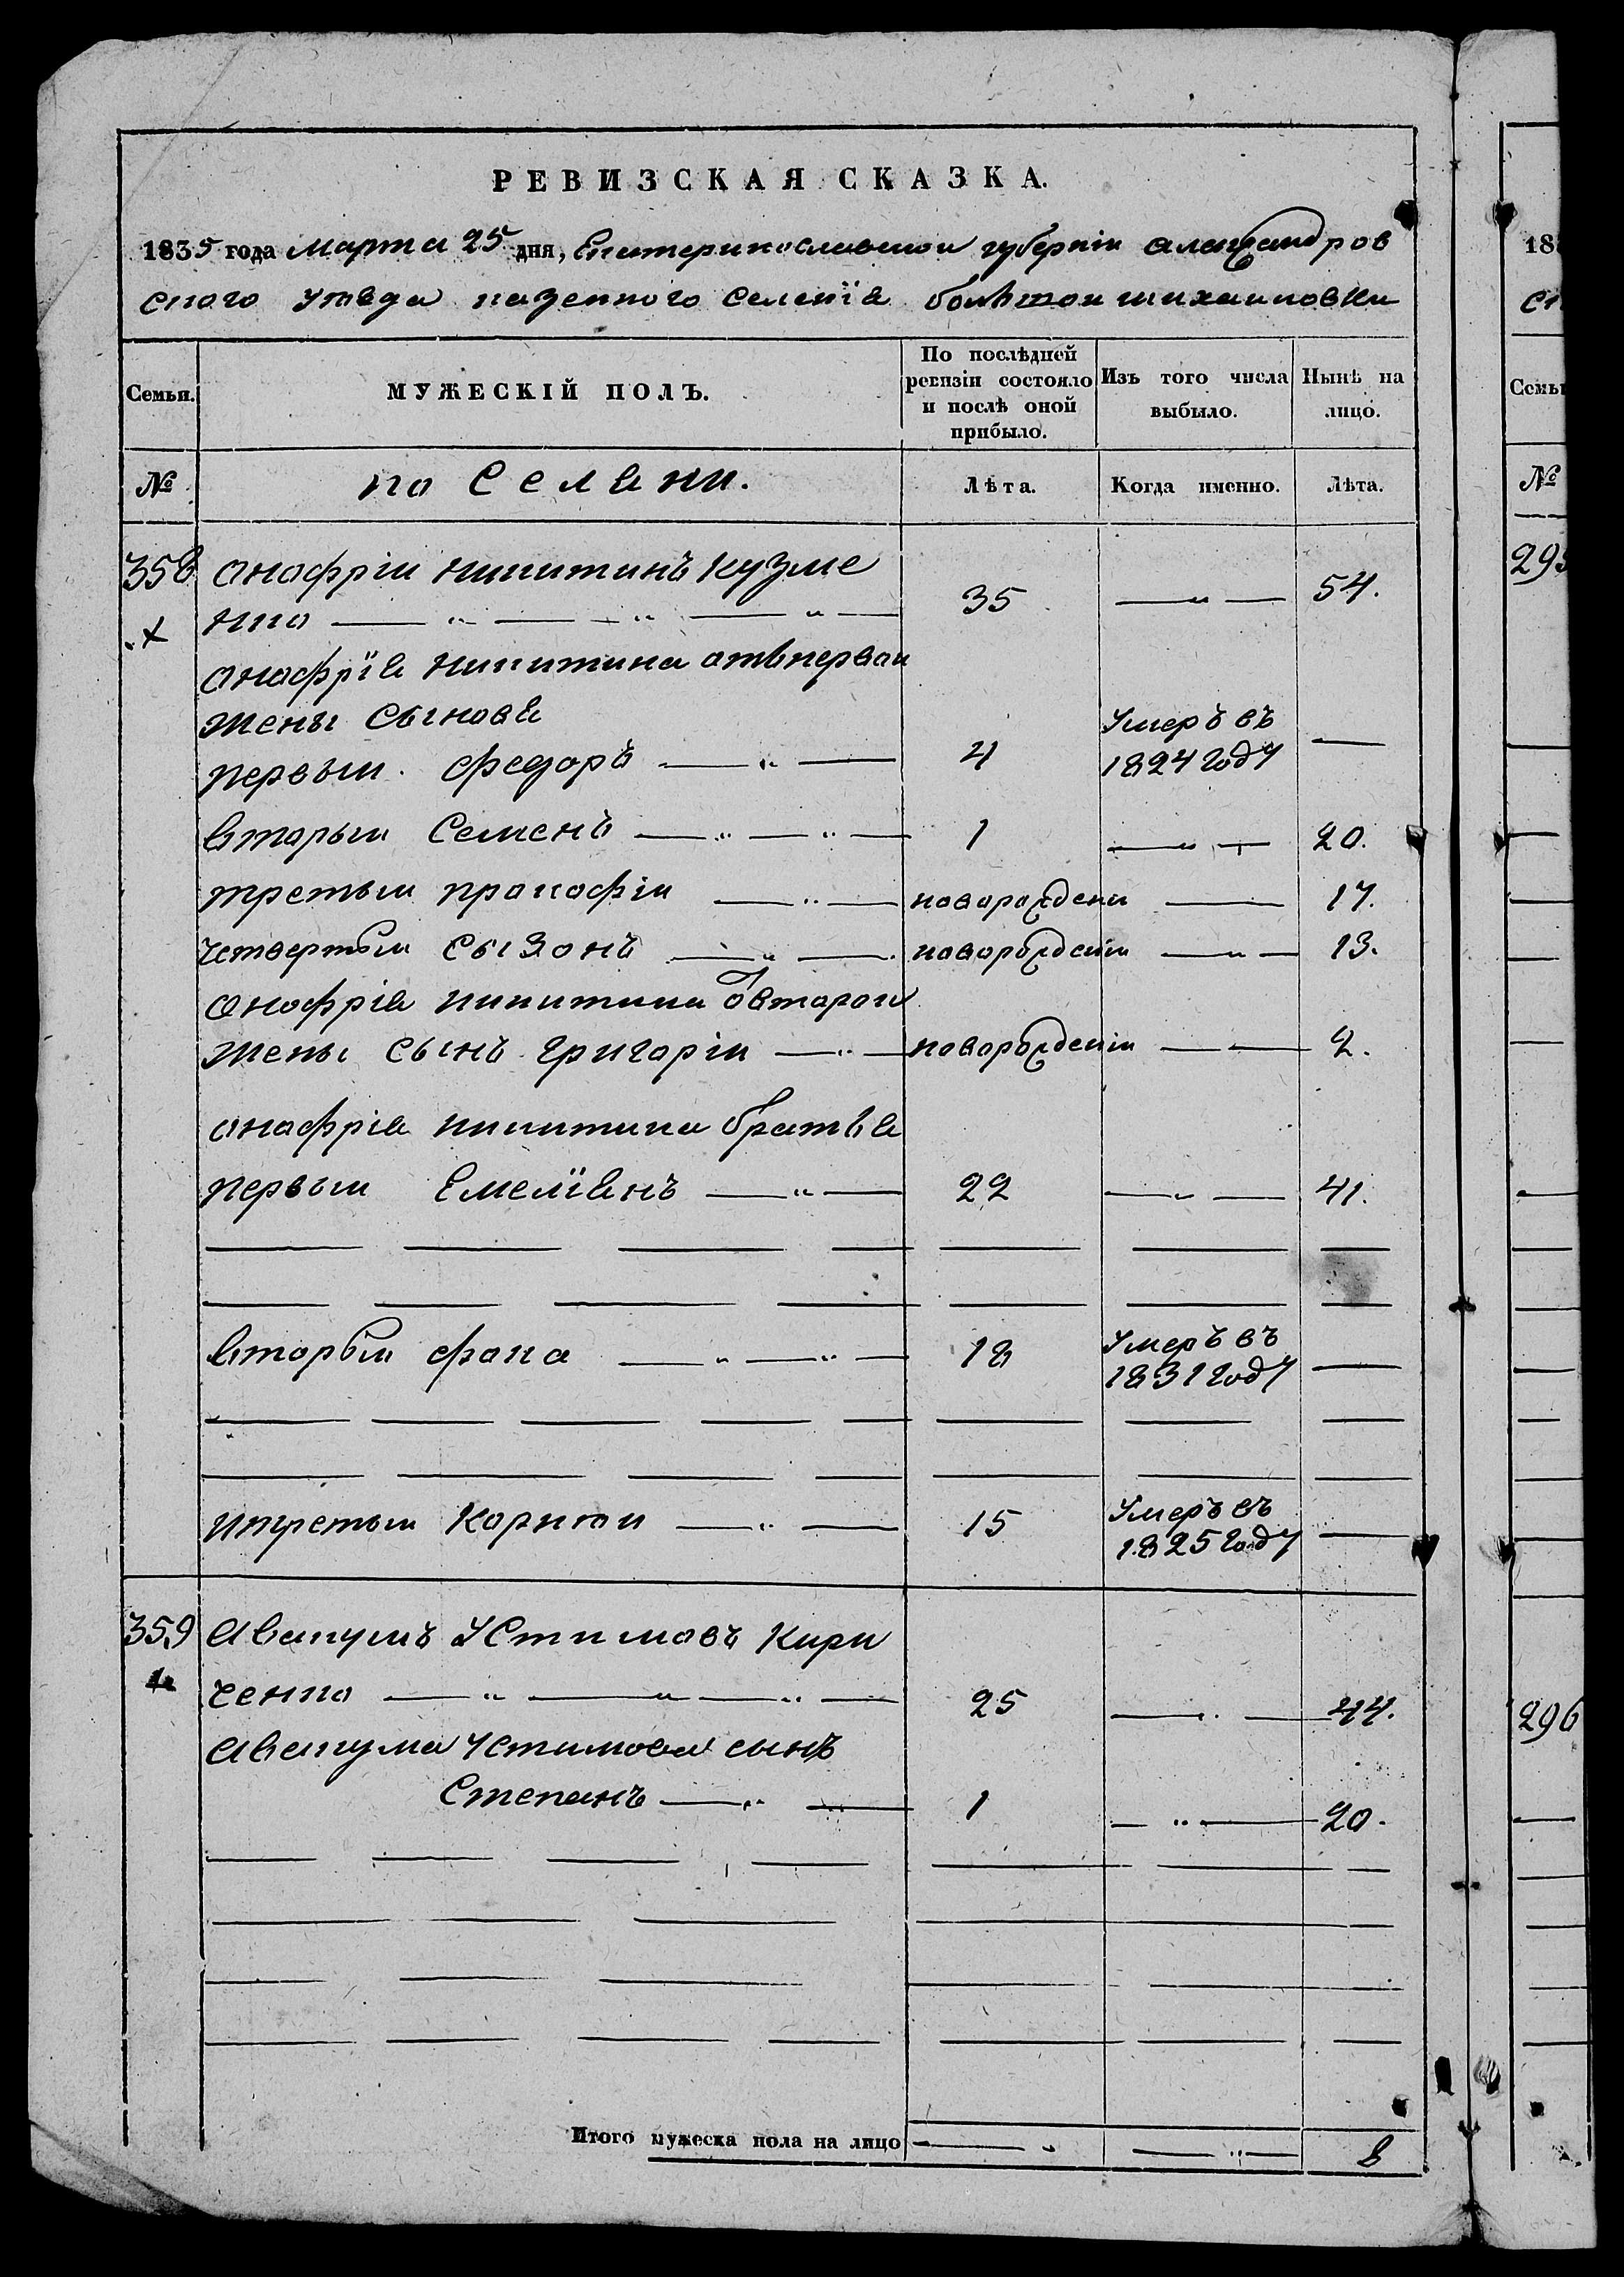 РЕВИЗСКАЯ СКАЗКА.
1835 года марта 25 дня, Екатеринославскои губернiи александров
ского уезда казенного селенiя болшои михаиловки
Семьи.
МУЖЕСКIЙ ПОЛЪ.
По послѣдней ревизiи состояло и послѣ оной прибыло.
Изъ того числа выбыло.
Нынѣ на лицо.
№
поселяни.
Лѣта.
Когда именно.
Лѣта.
358 анофрiи никитинъ кузме
нко 35 54.
анофрiя никитина отъпервои
жены сыновя
первыи федоръ 4 умеръ въ 1824 году
вторыи семенъ 1 20.
третыи прокофiи новорожденъ 17.
четвертыи сызонъ новорожденъ 13.
анофрiя никитина отвторои
жены сынъ григорiи новорожденъ 2.
анофрiя никитина братья
первыи емелiянъ 22 41.
вторыи фока 18 умеръ въ 1831 году
итретыи корнеи 15 умеръ въ 1825 году
359 авакумъ устимовъ кири
ченко 25 44.
авакума устимова сынъ
степанъ 1 20.
Итого мужеска пола на лицо 8
183
Семьи
№
295
296